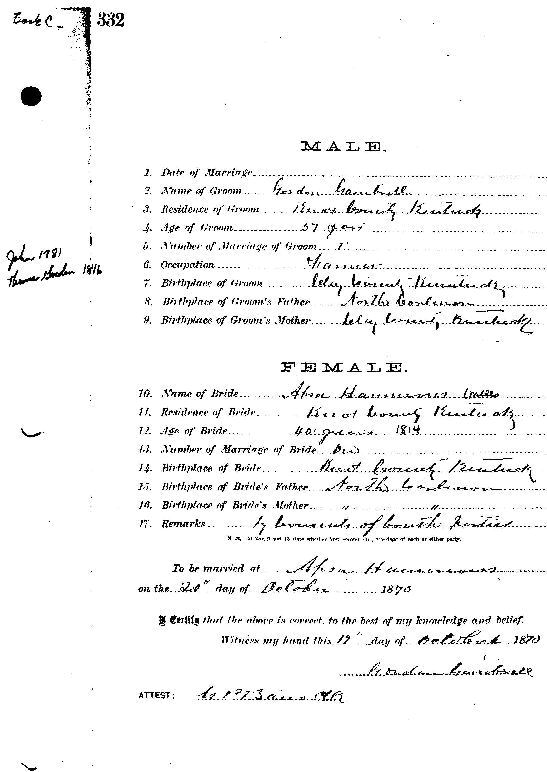 Book C
332
MALE.
1. Date of Marriage
2. Name of Groom Gordon Gambrell
3. Residence of Groom Knox County Kentucky
4. Age of Groom 57 years
5. Number of Marriage of Groom 1
6. Occupation Farmer
7. Birthplace of Groom Clay County Kentucky
8. Birthplace of Groom's Father North Carolina
9. Birthplace of Groom's Mother Clay County Kentucky
John 1781
Thomas 1816
FEMALE.
10. Name of Bride Hammons
11. Residence of Bride Knox County Kentucky
12. Age of Bride years 1814
13. Number of Marriage of Bride
14. Birthplace of Bride Knox County Kentucky
15. Birthplace of Bride's Father North Carolina
16. Birthplace of Bride's Mother " "
17. Remarks by of parties
To be married at Hammons
on the 20" day of October 1870
I Certify that the above is correct, to the best of my knowledge and belief.
Witness my hand this 12" day of October 1870
Gordon Gambrell
ATTEST: